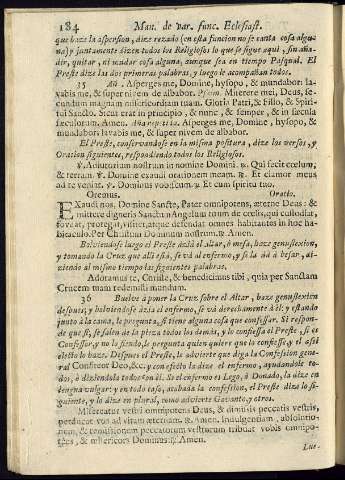 184 Man. de var. func. Eclesiast.
que haze la aspersion, dize rezado (en esta funcion no se canta cosa algu-
na) y juntamente dizen todos los Religiosos lo que se sigue aqui, sin aña-
dir, quitar, ni mudar cosa alguna, aunque sea en tiempo Pasqual. El
Preste dize las dos primeras palabras, y luego le acompañan todos.
35 Añ. Asperges me, Domine, hysopo, & mundabor: la-
vabis me, & super nivem de albabor. Psalm. Miserere mei, Deus, se-
cundum magnam misericordiam tuam. Gloria Patri, & Filio, & Spiri-
tui Sancto. Sicut erat in principio, & nunc, & semper, & in sæcula
sæculorum, Amen. Asperges me, Domine, hysopo, &
mundabor: lavabis me, & super nivem de albabor.
El Preste, conservandose en la misma postura, dize los versos, y
Oracion siguiente, respondiendo todos los Religiosos.
℣. Adiutorium nostrum in nomine Domini. ℟. Qui fecit cœlum,
& terram. ℣. Domine exaudi orationem meam. ℟. Et clamor meus
ad te veniat. ℣. Dominus vobiscum. ℟. Et cum spiritu tuo.
Oremus. Oratio.
Exaudi nos, Domine Sancte, Pater omnipotens, æterne Deus: &
mittere digneris Sanctum Angelum tuum de cœlis, qui custodiat,
foveat, protegat, visitet, atque defendat omnes habitantes in hoc ha-
bitaculo. Per Christum Dominum nostrum. ℟. Amen.
Bolviendose luego el Preste àzia el Altar, ò mesa, haze genuflexion,
y tomando la Cruz que allí està, se và al enfermo, y se la dà à besar, di-
ziendo al mismo tiempo las siguientes palabras.
Adoramus te, Christe, & benedicimus tibi, quia per Sanctam
Crucem tuam redemisti mundum.
36 Buelve à poner la Cruz sobre el Altar, haze genuflexion
despues, y bolviendose àzia el enfermo, se và derechamente à èl: y estando
junto à la cama, le pregunta, si tiene alguna cosa que confessar. Si respon-
de que sì, se salen de la pieza todos los demàs, y lo confiessa el Preste, si es
Confessor, y no lo siendo, le pregunta quien quiere que lo confiesse, y el assi
electo lo haze. Despues el Preste, le advierte que diga la Confession gene-
ral Confiteor Deo, &c. y con efecto la dize el enfermo, ayudandole to-
dos, ò diziendola todos con èl. Si el enfermo es Lego, ò Donado, la dize en
lengua vulgar; y en todo caso, acabada la confession, el Preste dize lo si-
guiente, y lo dize en plural, como advierte Gavanto, y otros.
Misereatur vestri omnipotens Deus, & dimissis peccatis vestris,
perducat vos ad vitam æternam. ℟. Amen. Indulgentiam, absolutio-
nem, & remissionem peccatorum vestrorum tribuat vobis omnipo-
tens, & misericors Dominus. ℟. Amen.
Lue-